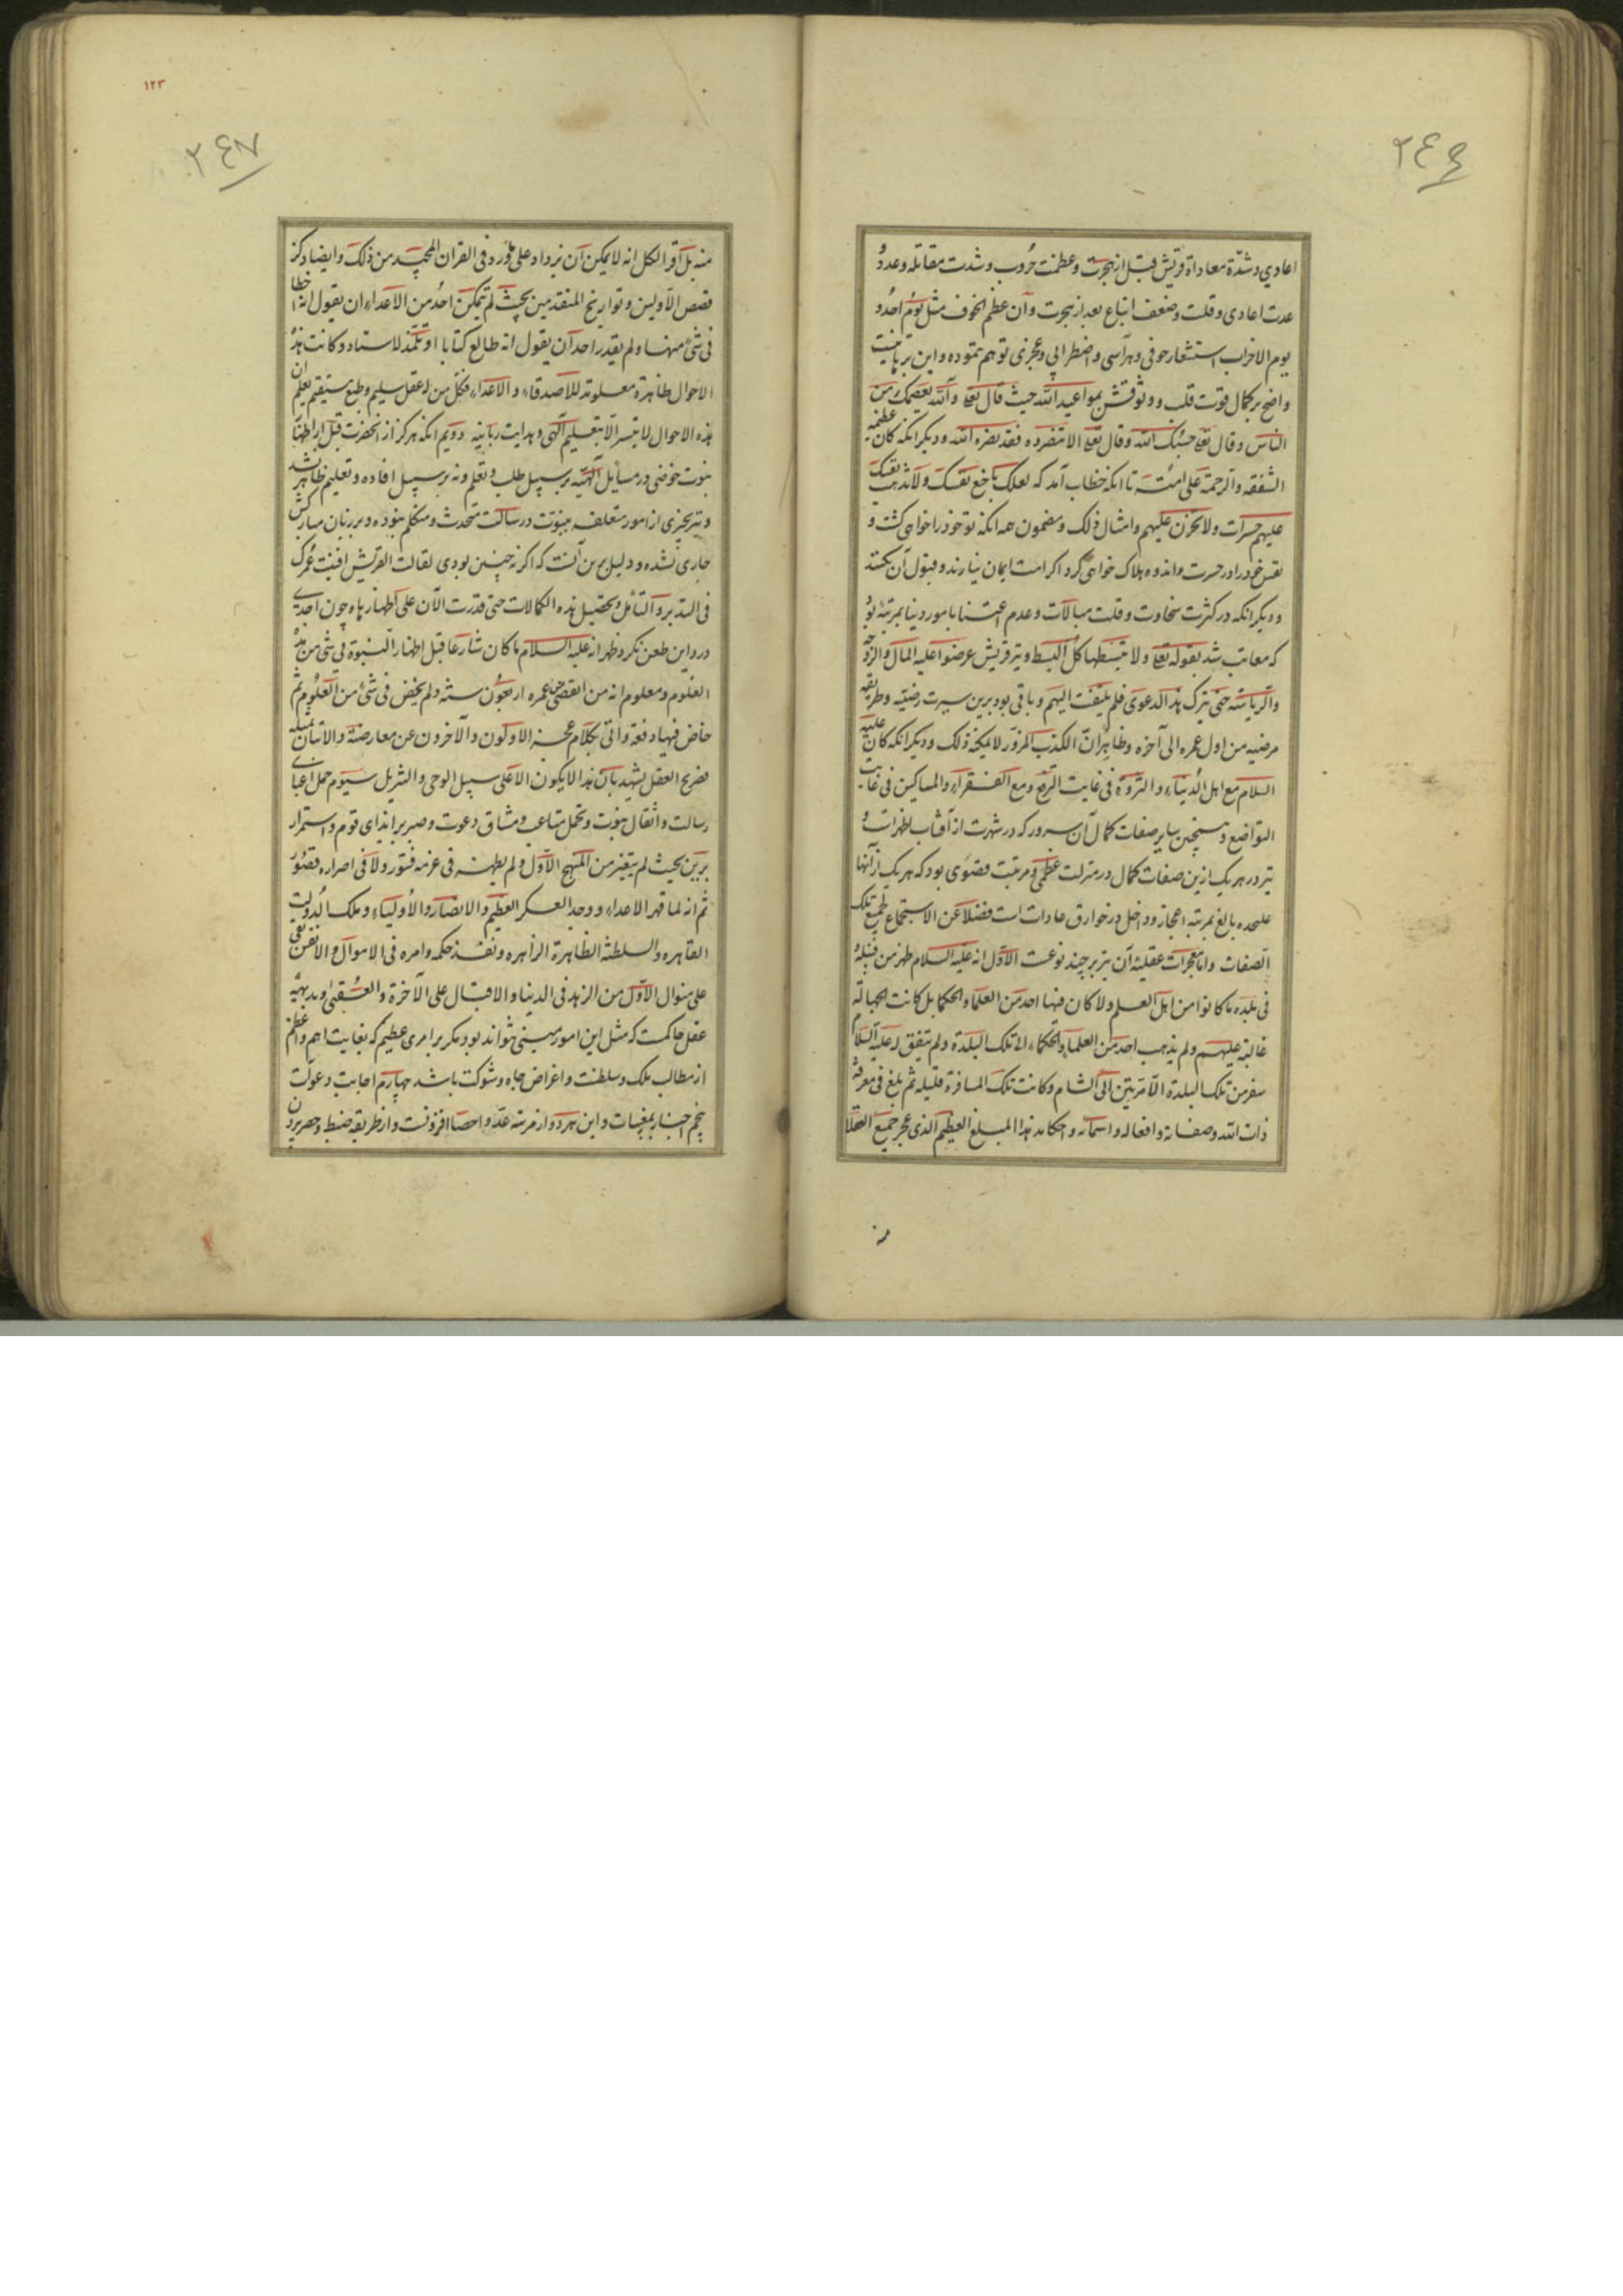 ٢٤٦
اعادی و شدّة معاداة قریش قبل از هجرت و عظمت حروب و شدت مقاتله و عدد و
عدت اعادی و قلت و ضعف اتباع بعد از هجرت و آن عظم الخوف مثل یوم احد و
یوم الاحزاب استشعار خوفی و هراسی و اضطرابی و عجزی توهم ننموده و این برهانیست
واضح بر کمال قوت قلب و وثوقش بمواعید الله حیث قال تعا و الله یعصمک من
الناس و قال تعا حسبک الله و قال تعا الا تنصروه فقد نصره الله و دیگر انکه کان عظیم
الشفقه و الرحمة علی امته تا انکه خطاب آمد که لعلک باخع نفسک و لا تذهب نفسک
علیهم حسرات و لا تحزن علیهم و امثال ذلک و مضمون همه انکه تو خود را خواهی کشت و
نفس خود را در حسرت و اندوه هلاک خواهی کرد اگر امت ایمان نیارند و قبول آن نکنند
و دیگر انکه در کثرت سخاوت و قلت مبالات و عدم اعتنا بامور دنیا بمرتبهٔ بود
که معاتب شد بقوله تعا و لا تبسطها کل البسط و نیز قریش عرضوا علیه المال و الزوجه
و الریاسه حتی یترک هذا الدعوی فلم یلتفت الیهم و باقی بود برین سیرت رضیه و طریقه
مرضیه من اول عمره الی آخره و ظاهر انّ الکذب المزوّر لا یمکنه ذلک و دیگر انکه کان علیه
السلام مع اهل الدنیاء و الثروة فی غایت الترفع و مع الفقراء و المساکین فی غایت
التواضع و همچنین سایر صفات کمال آن سرور که در شهرت از آفتاب اظهرات و
نیز در هر یک ازین صفات کمال در منزلت عظمی و مرتبت قصوی بود که هر یک از آنها
علیحده بالغ بمرتبه اعجاز و داخل در خوارق عادات است فضلا عن الاستجماع لجمیع تلک
الصفات و اما معجزات عقلیه آن نیز بر چند نوعت الاوّل انه علیه السلام ظهر من قبیله
فی بلده ما کانوا من اهل العلم و لا کان فیها احد من العلما و الحکما بل کانت الجهالة
غالبة علیهم و لم یذهب احد من العلما و الحکماء الی تلک البلدة و لم یتفق له علیه السلا
سفر من تلک البلدة الا مرتین الی الشام و کانت تلک المسافرة قلیله ثم بلغ فی معرفة
ذات الله و صفاته و افعاله و اسمائه و احکامه هذا المبلغ العظیم الذی عجز جمیع العقلا
منه
١٢٣
٢٤٧
منه بل اقر الکل انه لا یمکن ان یزداد علی ما ورد فی القران المجید من ذلک و ایضا ذکر
قصص الاولین و تواریخ المتقدمین بحیث لم یتمکن احد من الاعداء ان یقول انه اخطا
فی شئ منها و لم یقدر احد آن یقول انه طالع کتابا او تلمّذ لاستاد و کانت هذه
الاحوال ظاهرة معلومة للاصدقاء و الاعداء فکل من له عقل سلیم و طبع مستقیم یعلم ان
هذه الاحوال لا یتسر الا بتعلیم الهی و هدایت ربانیه دویم انکه هرگز از انحضرت قبل از اظهار
نبوت خوضی در مسایل الهیّه بر سبیل طلب و تعلم و نه بر سبیل افاده و تعلیم ظاهر نشد
و نیز بچیزی از امور متعلقه بنبوّت و رسالت متحدث و متکلم نبوده و بر زبان مبارکش
جاری نشده و دلیل برین آنست که اگر نه چنین بودی لقالت القریش افنیت عمرک
فی التدبر و التامل و تحصیل هذه الکمالات حتی قدرت الآن علی اظهارها و چون احدی
درو این طعن نکرد ظهر انه علیه السلام ما کان شارعا قبل اظهار النبوة فی شئ من هذه
العلوم و معلوم انه من انقضی من عمره اربعون سنة و لم یخض فی شئ من العلوم ثم
خاض فیها دفعة و اتی بکلام عجز الاولون و الآخرون عن معارضته و الاتیان بمثله
فصریح العقل یشهد بان هذا لا یکون الا علی سبیل الوحی و التنزیل سیوم حمل اعبای
رسالت و اثقال نبوت و تحمل متاعب و مشاق دعوت و صبر بر ایذای قوم و استمرار
برین بحیث لم یتغیر من المنهج الاوّل و لم یظهر فی عزمه فتور و لا فی اصراره قصور
ثم انه لما قهر الاعداء و وجد العسکر العظیم و الانصار و الاولیاء و ملک الدولت
القاهره و السلطنة الظاهرة الزاهره و نفذ حکمه و امره فی الاموال و الانفس بقی
علی منوال الاوّل من الزهد فی الدنیا و الاقبال علی الآخرة و العقبی و بدیههٔ
عقل حاکمست که مثل این امور مبنی نتواند بود مکر بر امری عظیم که بغایت اهم و اعظم
از مطالب ملک و سلطنت و اغراض جاه و شوکت باشد چهارم اجابت دعوات
پنجم اخبار بمغیبات و این هر دو از مرتبه عدّ و احصا افزونست و از طریقه ضبط و حصر بیرون